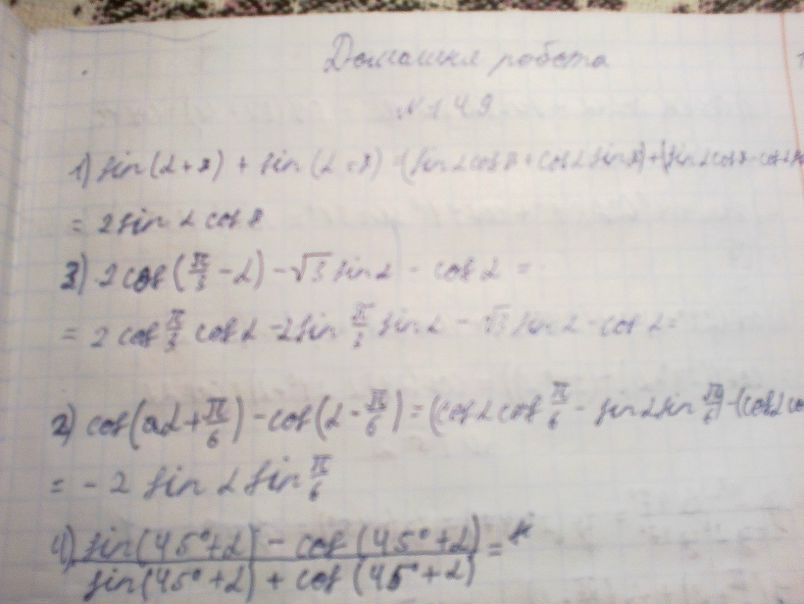 Домашня робота
№ 1.49
1) sin(α+β) + sin(α-β) = (sin α cos β + cos α sin β) + (sin α cos β - cos α
= 2 sin α cos β
3) 2 cos(π/3 - α) - √3 sin α - cos α =
= 2 cos π/3 cos α - 2 sin π/3 sin α - √3 sin α - cos α =
2) cos(α + π/6) - cos(α - π/6) = (cos α cos π/6 - sin α sin π/6) - (cos α co
= - 2 sin α sin π/6
4) sin(45°+α) - cos(45°+α) / sin(45°+α) + cos(45°+α) =